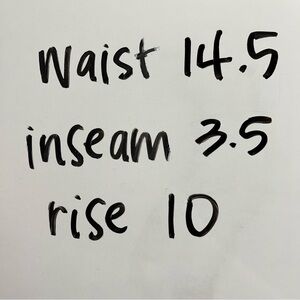 Waist 14.5
inseam 3.5
rise 10